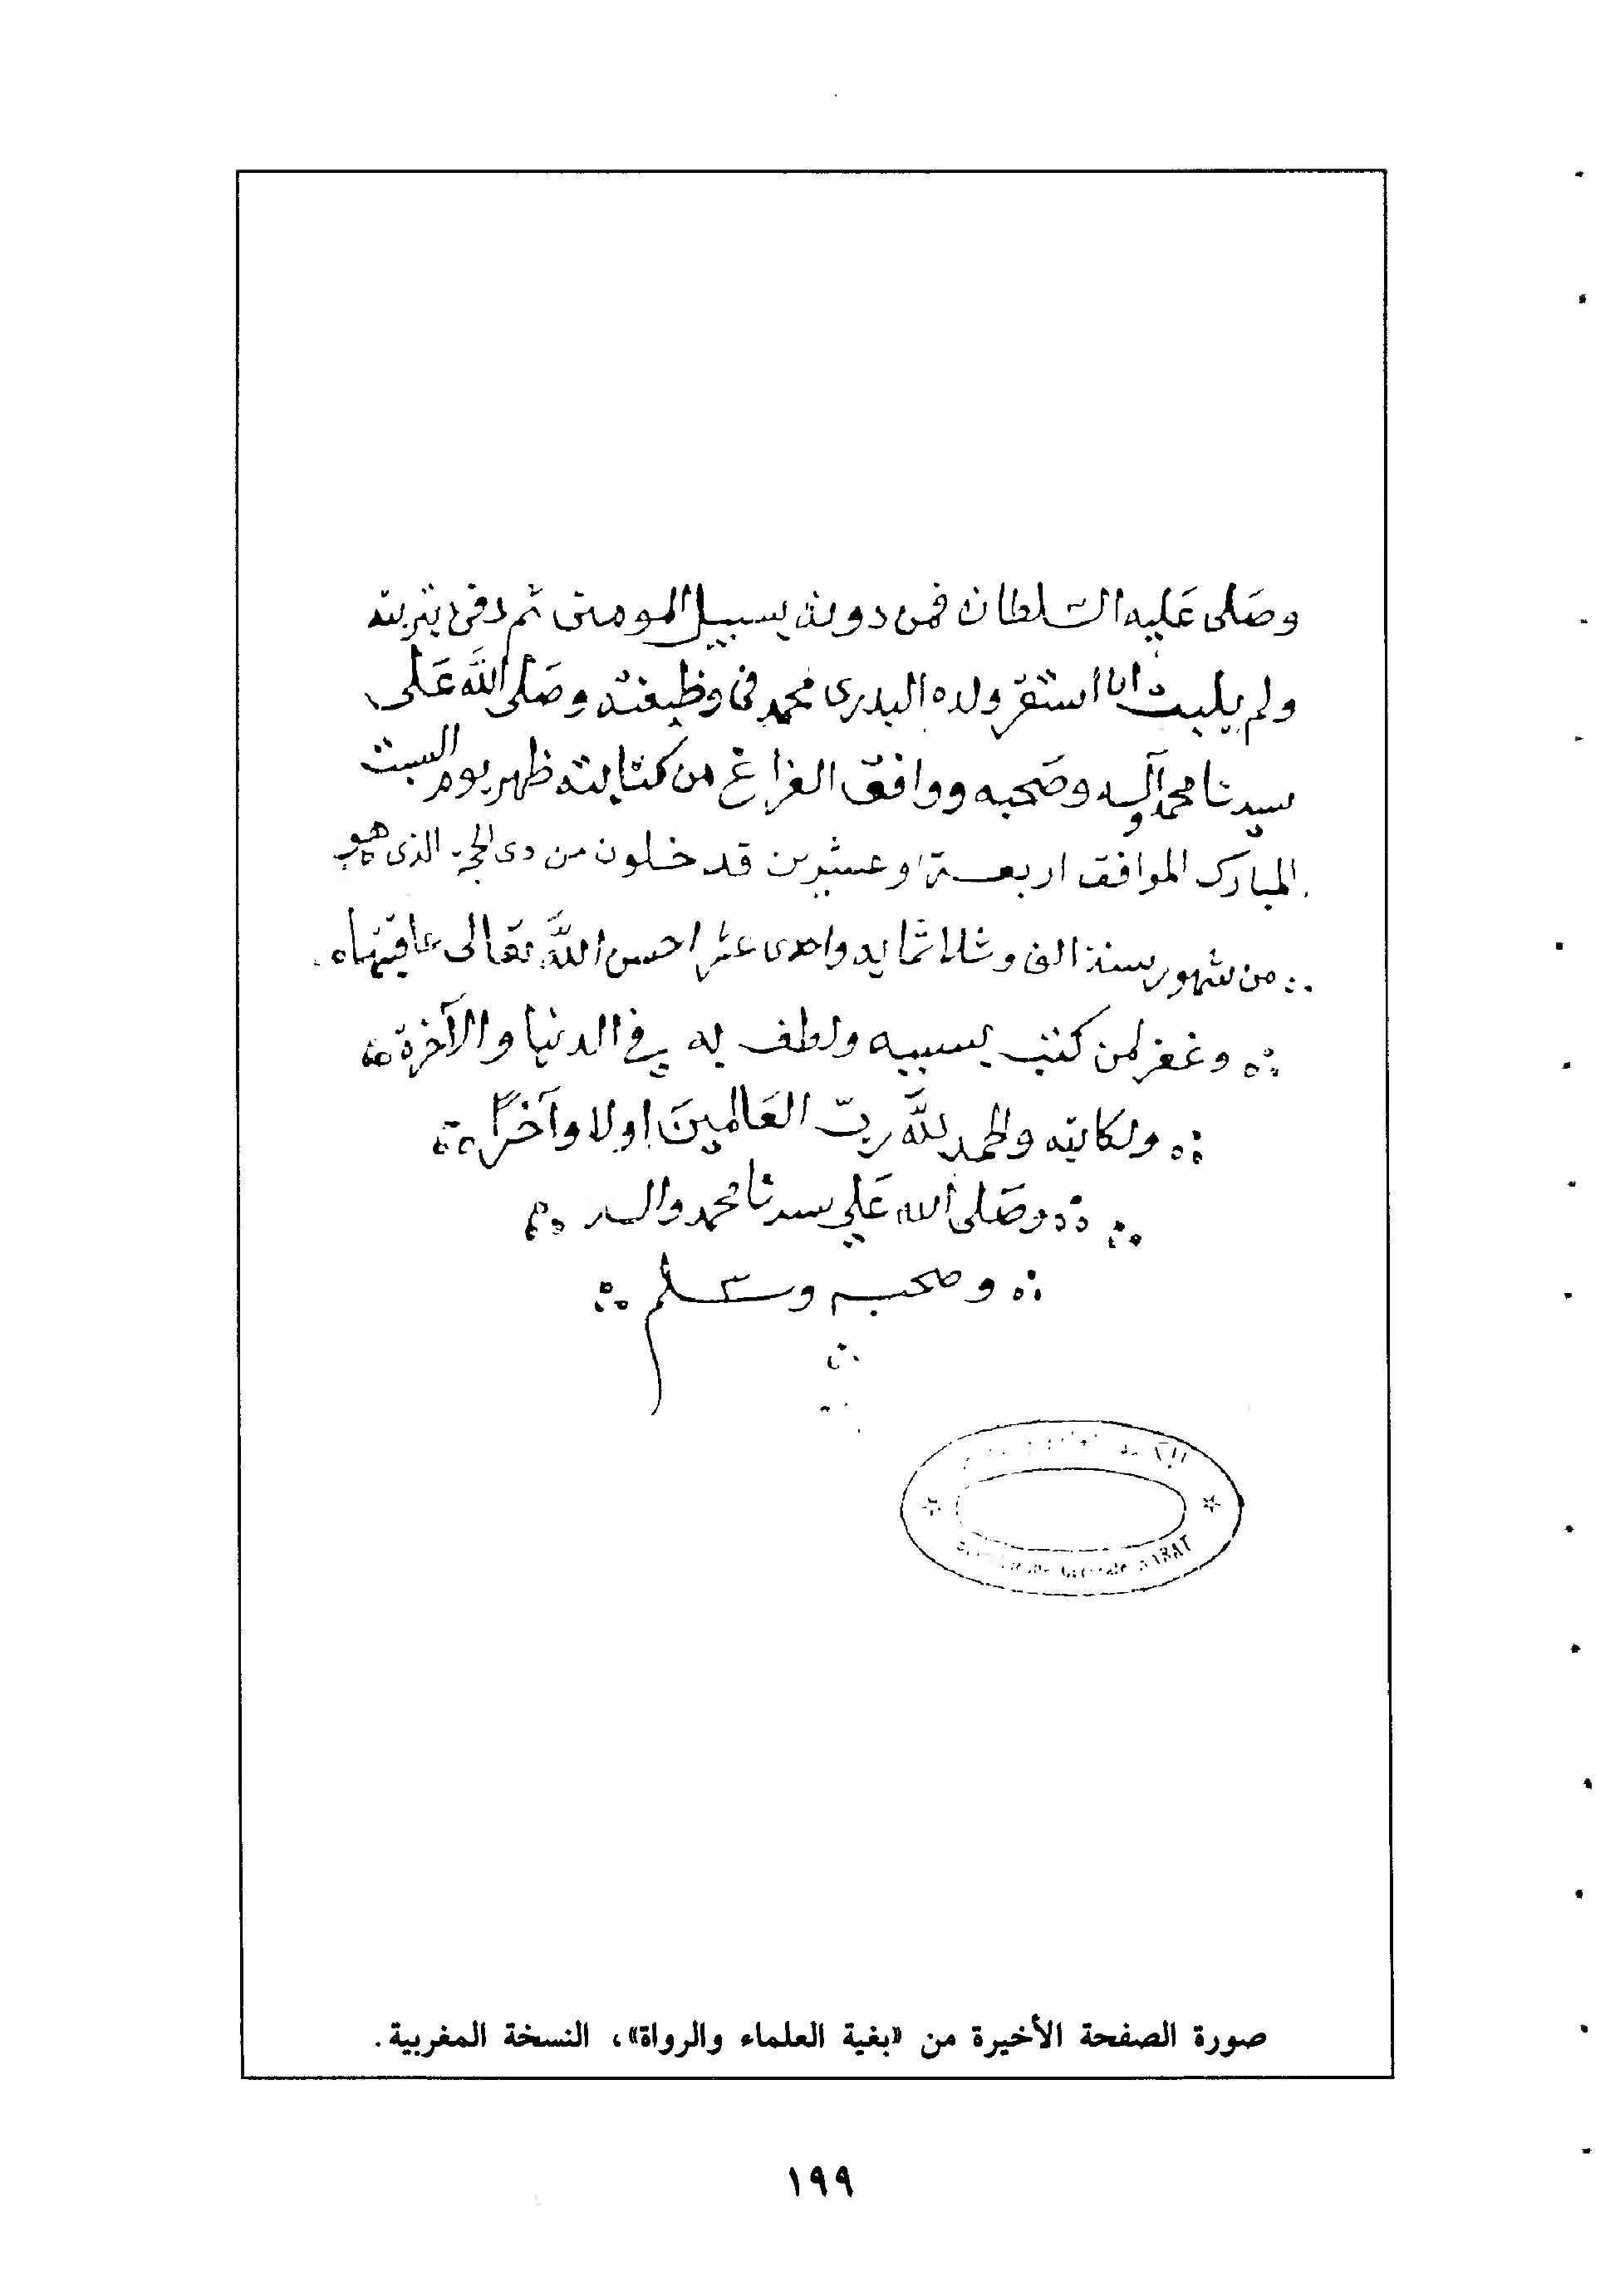 وصلى عليه السلطان فمن دونه بسبيل المومنى ثم دفن بتربته
ولم يلبث ان استقر ولده البدرى محمد فى وظيفته وصلى الله على
سيدنا محمد وآله وصحبه ووافق الفراغ من كتابته ظهر يوم السبت
المبارك الموافق اربعة وعشرين قد خلون من دى الحجه الذى هو
من شهور سنة الف وثلاثمايه واحدى عشر احسن الله تعالى عاقبتها
وغفر لمن كتب بسببه ولطف به في الدنيا والآخرة
ولكاتبه والحمد لله رب العالمين اولا وآخرًا
وصلى الله على سيدنا محمد واله
وصحبه وسلم
RABAT
صورة الصفحة الأخيرة من «بغية العلماء والرواة»، النسخة المغربية.
١٩٩